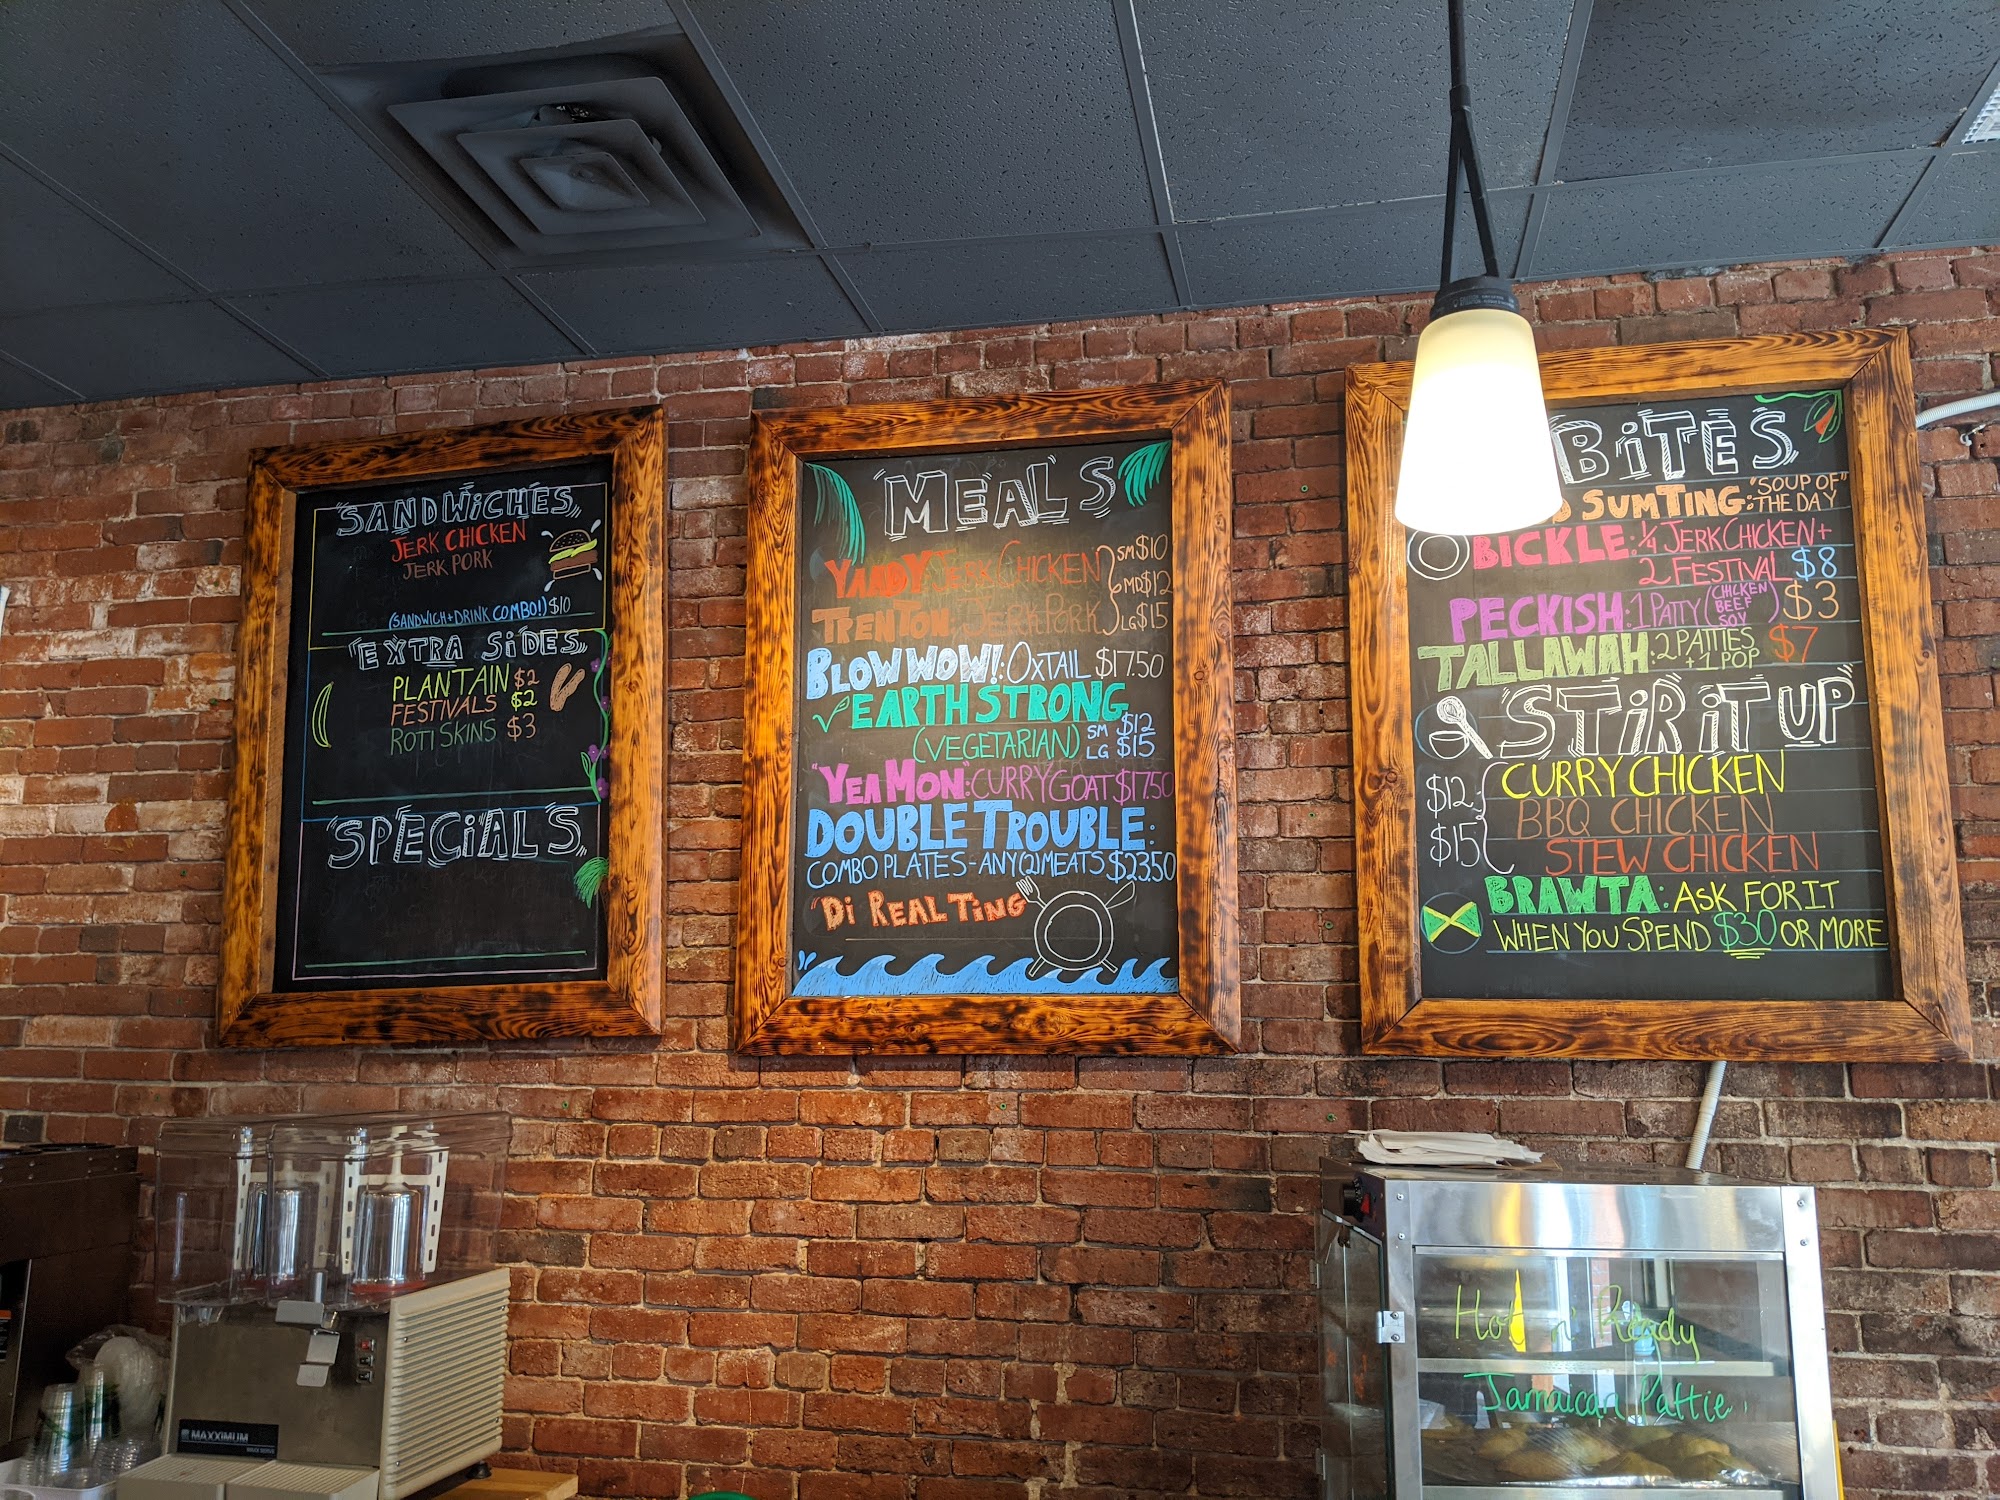 SANDWiCHES
JERK CHICKEN
JERK PORK
(SANDWICH+DRINK COMBO!) $10
EXTRA SiDES
PLANTAIN $2
FESTIVALS $2
ROTI SKINS $3
SPECiALS
MEALS
YAADY: JERK CHICKEN SM $10
MD $12
TRENTON: JERK PORK LG $15
BLOWWOW!: OXTAIL $17.50
EARTH STRONG
(VEGETARIAN) SM $12
LG $15
"YEA MON": CURRY GOAT $17.50
DOUBLE TROUBLE:
COMBO PLATES - ANY (2) MEATS $23.50
"Di REAL TiNG"
BiTES
SUMTING: "SOUP OF"
THE DAY
BICKLE: 1/4 JERK CHICKEN +
2 FESTIVAL $8
PECKISH: 1 PATTY (CHICKEN
BEEF
SOY) $3
TALLAWAH: 2 PATTIES
+ 1 POP $7
STiR iT UP
$12 CURRY CHICKEN
BBQ CHICKEN
$15 STEW CHICKEN
BRAWTA: ASK FOR IT
WHEN YOU SPEND $30 OR MORE
Hot n' Ready
Jamaican Pattie
MAXXIMUM